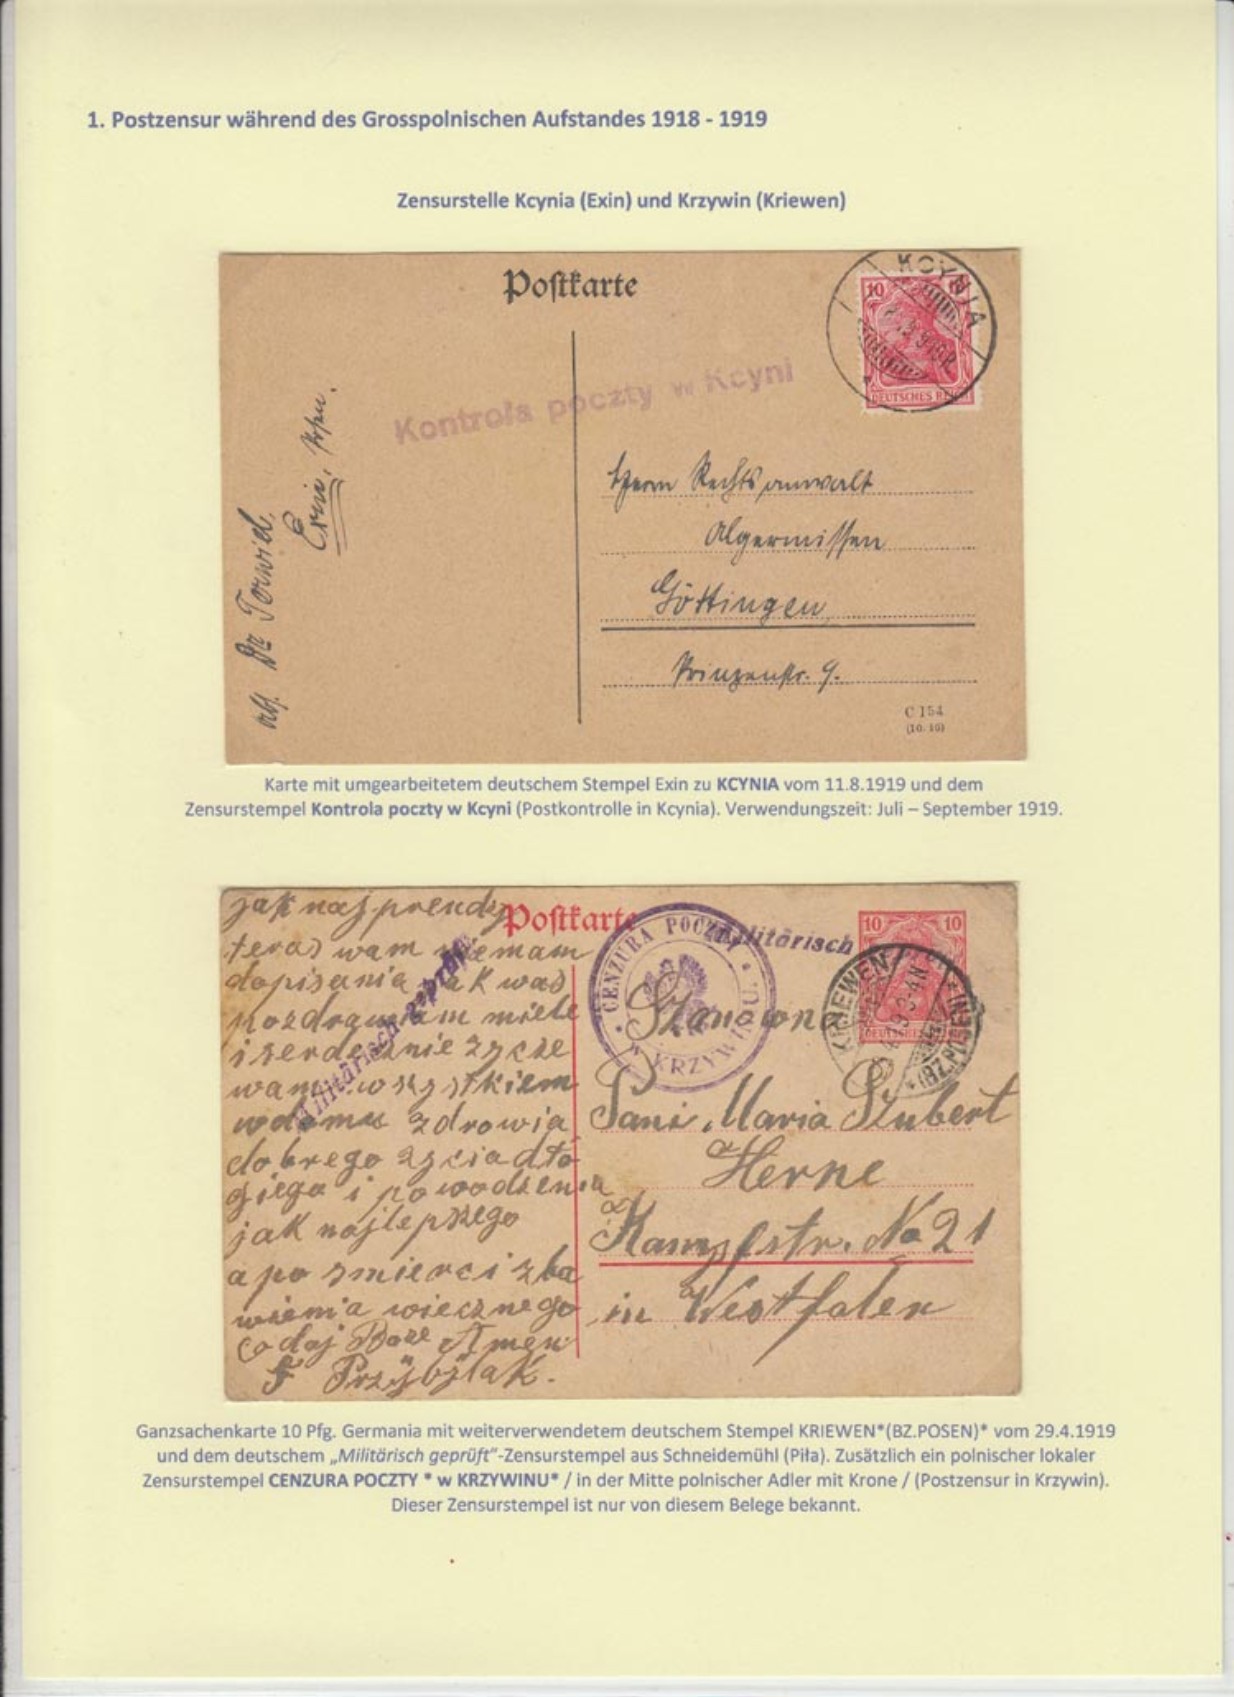 1. Postzensur während des Grosspolnischen Aufstandes 1918 - 1919
Zensurstelle Kcynia (Exin) und Krzywin (Kriewen)
Postkarte
KCYNIA
10
DEUTSCHES REICH
Kontrola poczty w Kcyni
Dr Torwiel
Exin,
Herrn Rechtsanwalt
Algermissen
Göttingen
Prinzenstr. 9.
C 154
Karte mit umgearbeitetem deutschem Stempel Exin zu KCYNIA vom 11.8.1919 und dem
Zensurstempel Kontrola poczty w Kcyni (Postkontrolle in Kcynia). Verwendungszeit: Juli – September 1919.
Postkarte
CENZURA POCZTY * W KRZYWINIU *
Militärisch
Militärisch geprüft
10 10
KRIEWEN
*(BZ.POSEN)*
jak naj prendzy
teras wam niemam
dopisania
pozdrawiam miele
i serdecznie zycze
wam wszystkiem
w domu zdrowia
dobrego zycia dło
giego i powodzenia
jak najlepszego
a po smierci zba
wienia wiecznego
co daj Boze Amen
F Przybylak.
Szanown
Pani Maria Szubert
Herne
Kampfstr. No 21
in Westfalen
Ganzsachenkarte 10 Pfg. Germania mit weiterverwendetem deutschem Stempel KRIEWEN*(BZ.POSEN)* vom 29.4.1919
und dem deutschem „Militärisch geprüft“-Zensurstempel aus Schneidemühl (Piła). Zusätzlich ein polnischer lokaler
Zensurstempel CENZURA POCZTY * w KRZYWINU* / in der Mitte polnischer Adler mit Krone / (Postzensur in Krzywin).
Dieser Zensurstempel ist nur von diesem Belege bekannt.